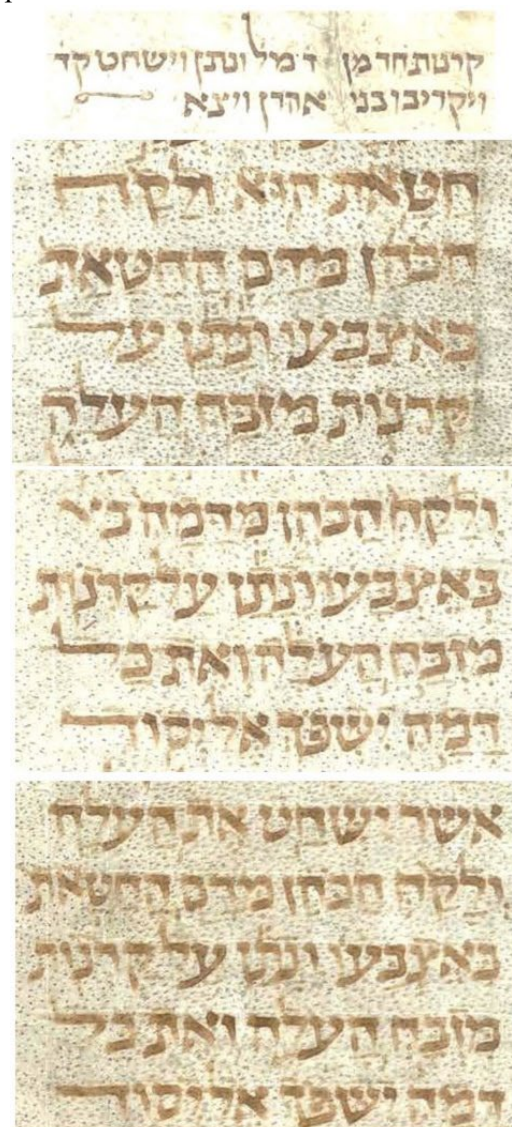 קרנת חד מן ד מל ונתן וישחט קד
ויקריבו בני אהרן ויצא
חטאת הוא ולקח
הכהן מדם החטאת
באצבעו ונתן על
קרנות מזבח העלה
ולקח הכהן מדמה
באצבעו ונתן על קרנות
מזבח העלה ואת כל
דמה ישפך אל יסוד
אשר ישחט את העלה
ולקח הכהן מדם החטאת
באצבעו ונתן על קרנות
מזבח העלה ואת כל
דמה ישפך אל יסוד